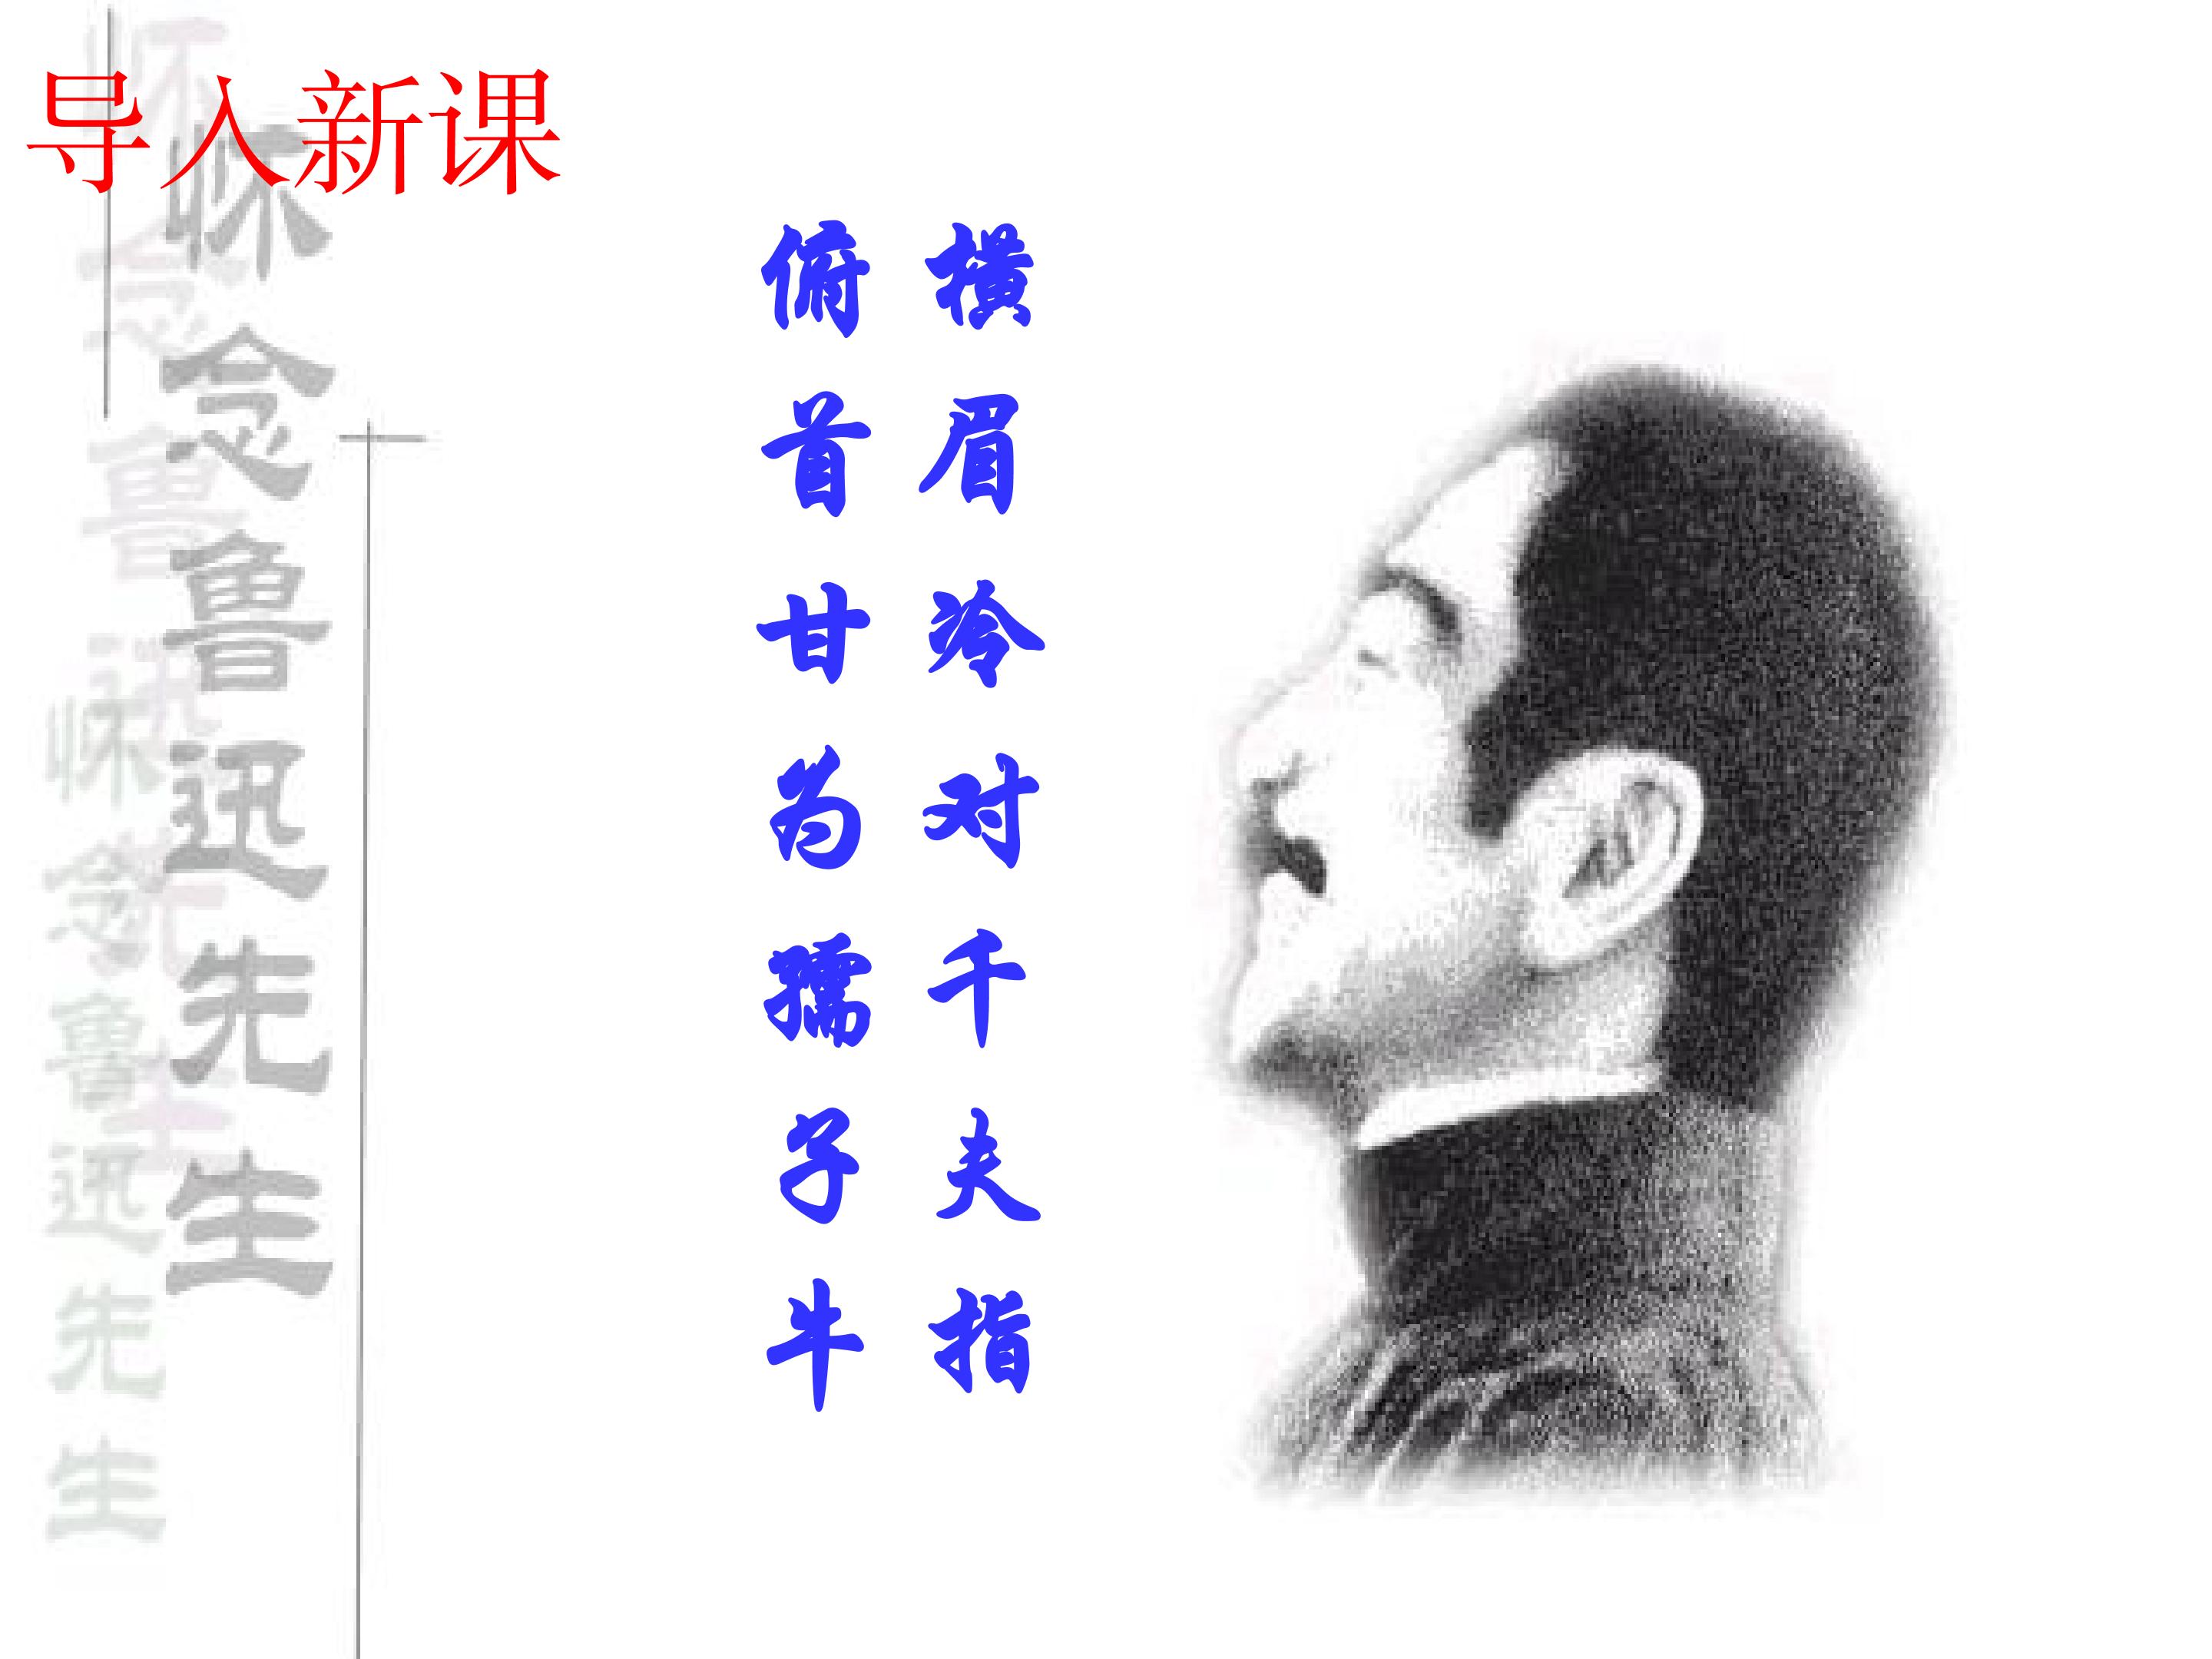 导入新课
横眉冷对千夫指
俯首甘为孺子牛
怀念鲁迅先生
怀念鲁迅先生
怀念鲁迅先生